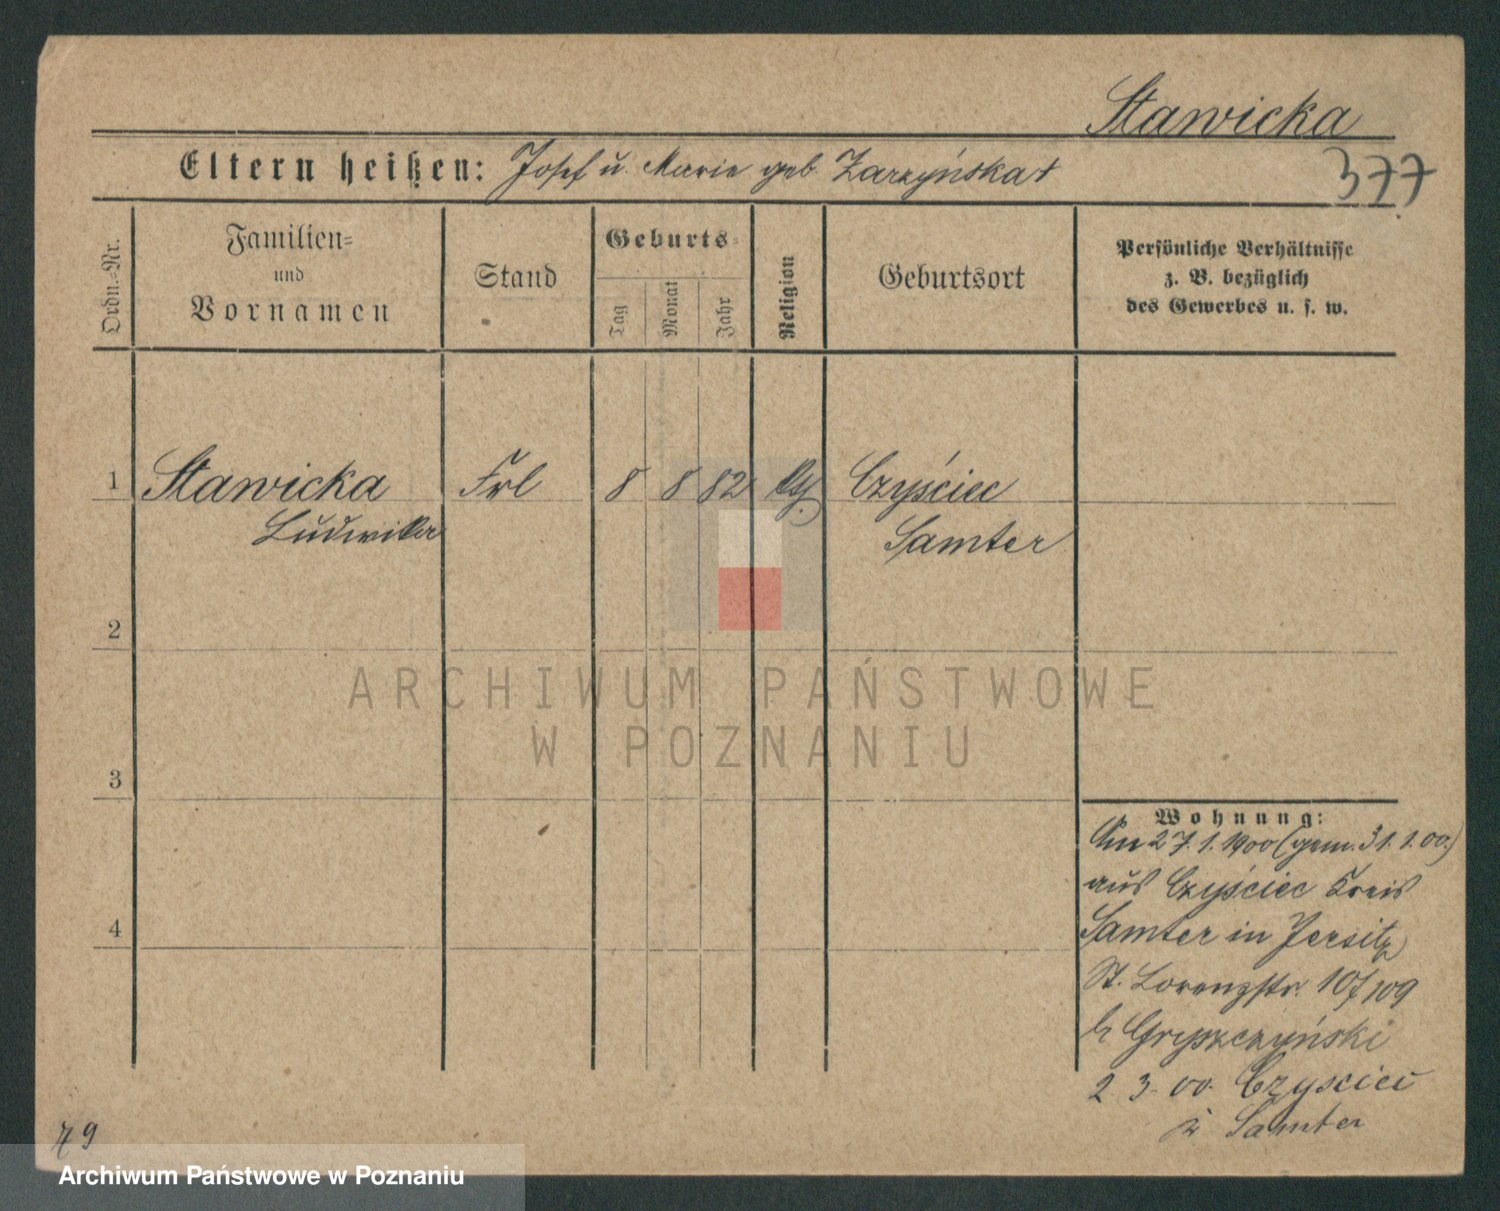 Stawicka
Eltern heißen: Josef u. Marie geb Zarzyńska +
377
Ordn.-Nr.
Familien-
und
Vornamen
Stand
Geburts-
Tag
Monat
Jahr
Religion
Geburtsort
Persönliche Verhältnisse
z. B. bezüglich
des Gewerbes u. s. w.
1 Stawicka Frl 8 8 82 Czyściec
Ludwika
Samter
2
ARCHIWUM PAŃSTWOWE
W POZNANIU
3
Wohnung:
Am 27.1.1900 (gem. 31.1.00.)
aus Czyściec Kreis
4
Samter in Jersitz
St. Lorenzstr. 107/109
b Gryszczyński
2. 3. 00. Czysciec
Samter
79
Archiwum Państwowe w Poznaniu